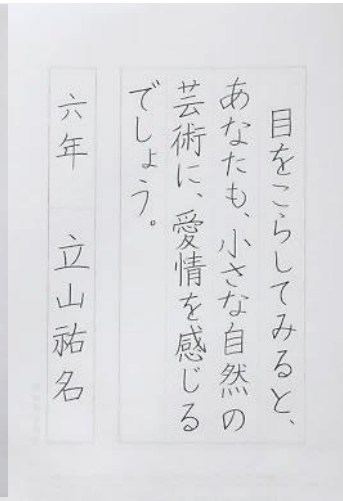 目をこらしてみると、
あなたも、小さな自然の
芸術に、愛情を感じる
でしょう。
六年 立山祐名